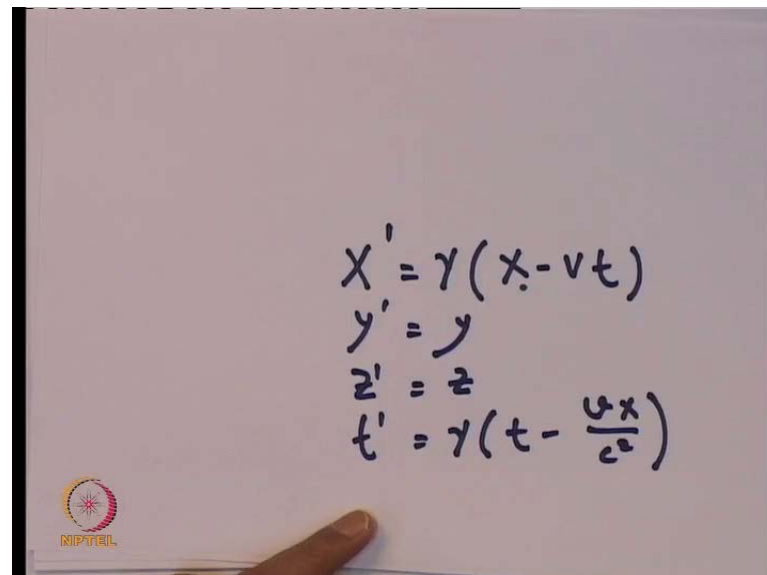 x' = γ(x - vt)
y' = y
z' = z
t' = γ(t - vx/c²)
NPTEL